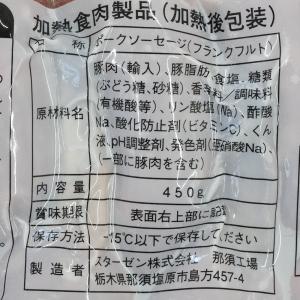 加熱食肉製品（加熱後包装）
名称 ポークソーセージ（フランクフルト）
原材料名 豚肉（輸入）、豚脂肪、食塩、糖類
（ぶどう糖、砂糖）、香辛料／調味料
（有機酸等）、リン酸塩（Na）、酢酸
Na、酸化防止剤（ビタミンC）、くん
液、pH調整剤、発色剤（亜硝酸Na）、
（一部に豚肉を含む）
内容量 450g
賞味期限 表面右上部に記載
保存方法 -15℃以下で保存してください
製造者 スターゼン株式会社 那須工場
栃木県那須塩原市島方457-4